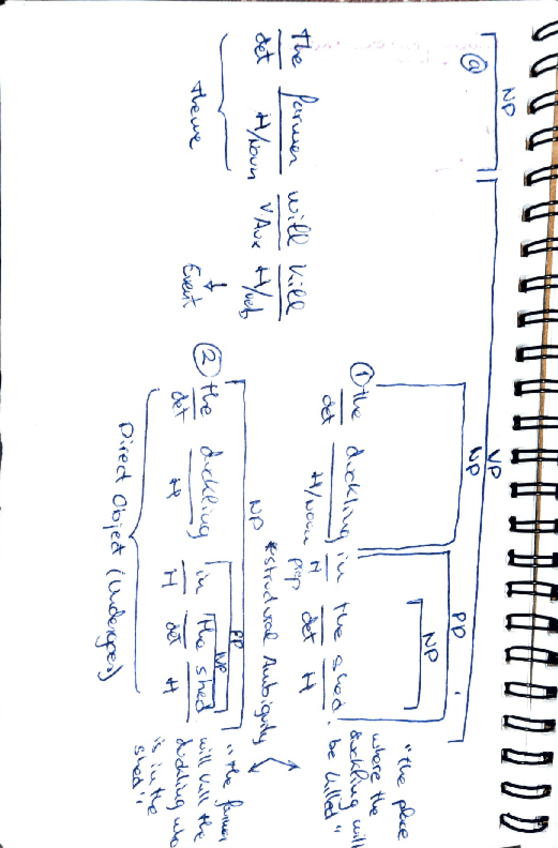 NP
VP
NP
PP
NP
ⓐ
① the duckling in the shed.
det H/noun H det H
prep
"the place
where the
duckling will
be killed"
the farmer will kill
det H/noun V.Aux H/verb
Theme
Event
*structural Ambiguity
NP
PP
NP
② the duckling in the shed
det H H det H
"the farmer
will kill the
duckling who
is in the
shed"
Direct Object (Undergoer)